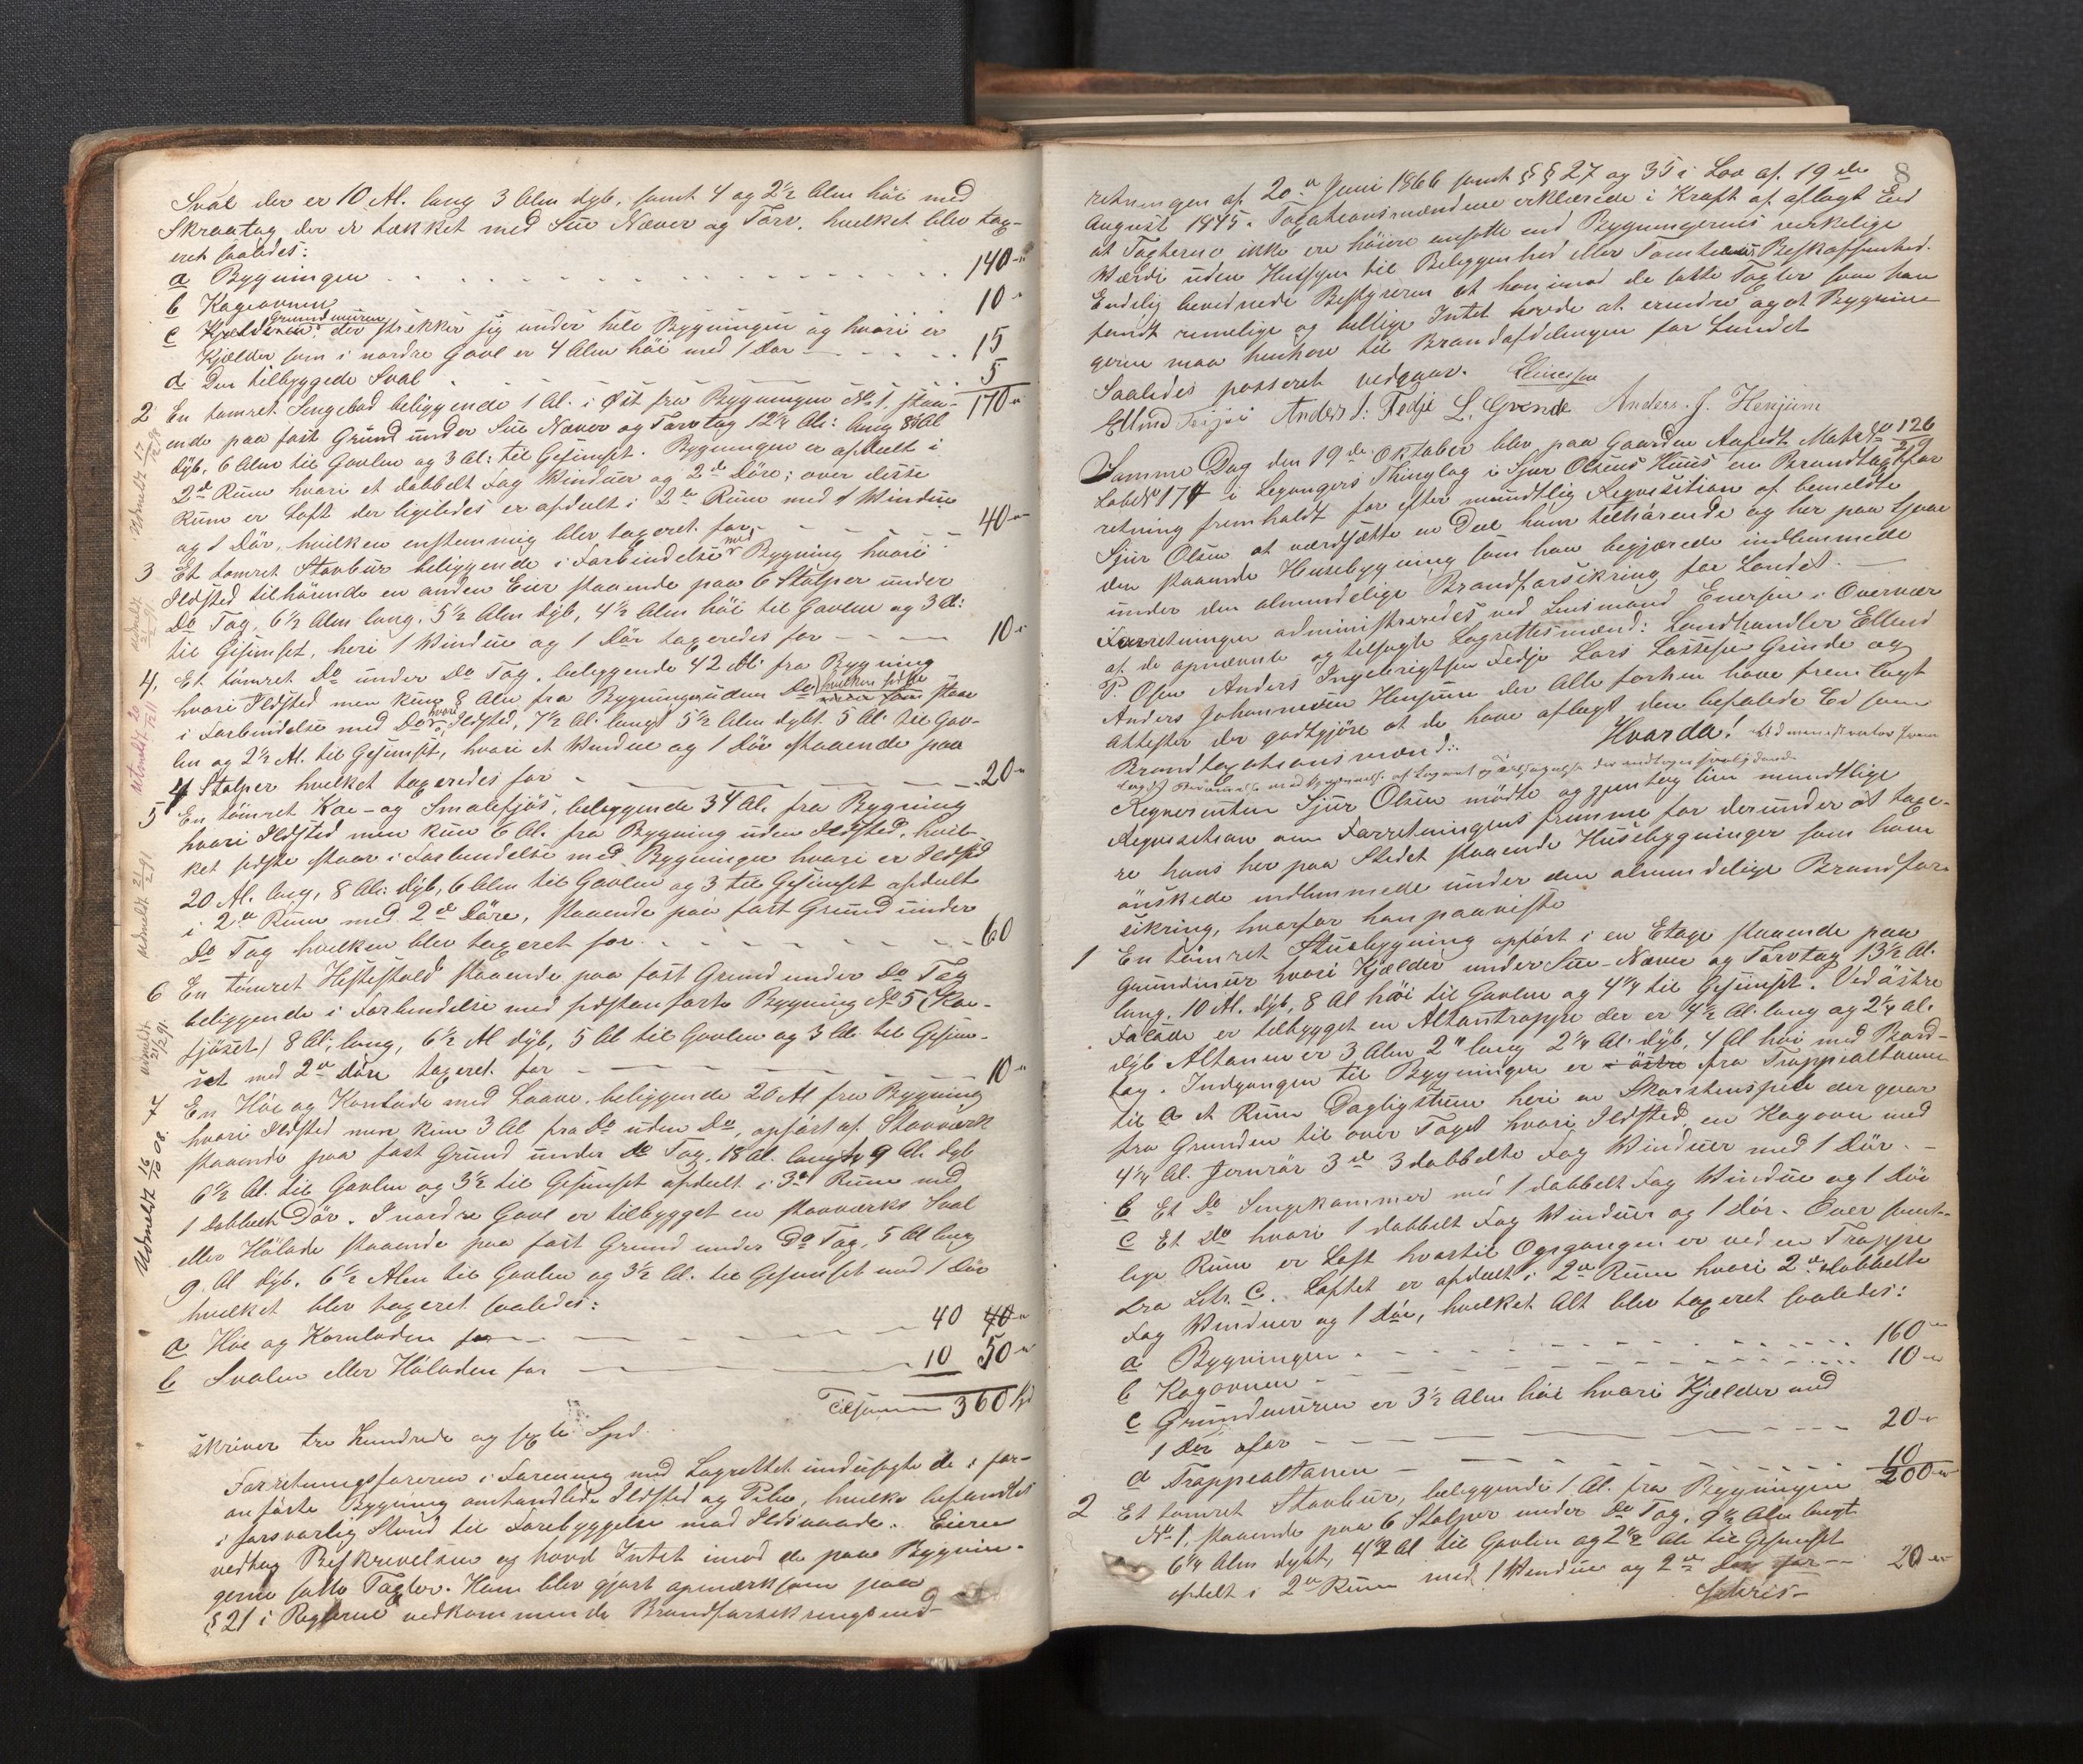 Sval der er 10 Al. lang 3 Alen dyb, samt 4 og 2½ Alen höi med
Skraatag der er tækket med Sue Næver og Torv, hvilket blev tax-
eret saaledes:
a Bygningen 140 "
b Kagovnen 10 "
c Kjelderen grundmuren der strækker sig under hele Bygningen og hvori er
Kjælder som i nordre Gavl er 4 Alen höi med 1 Dør 15
d Den tilbyggede Sval 5
170 "
2 En tømret Sengebod beliggende 1 Al. i Øst fra Bygningen No 1, staa-
ende paa fast Grund under Sue Næver og Torvtag 12¼ Al: lang 8 Al
dyb, 6 Alen til Gavlen og 3 Al: til Gesimset. Bygningen er afdeelt i
2de Rum hvori et dobbelt Fag Vinduer og 2de Döre; over disse
Rum er Loft der ligeledes er afdeelt i 2de Rum med 1 Vindue
og 1 Dör, hvilken enstemmig blev taxeret for 40 "
3 Et tømret Stavbur beliggende i Forbindelse med Bygning hvori
Ildsted tilhörende en anden Eier staaende paa 6 Stolper under
Do Tag, 6½ Alen lang, 5½ Alen dyb, 4½ Alen höi til Gavlen og 3 Al:
til Gesimset, heri 1 Vindue og 1 Dör taxeredes for 10 "
4. Et tömret Do under Do Tag, beliggende 42 Al: fra Bygning
hvori Ildsted men kun 8 Alen fra Bygning uden Do, hvilken sidste staar
i Forbindelse med Do hvori Ildsted, 7½ Al: langt 5½ Alen dybt. 5 Al. til Gav-
len og 2½ Al. til Gesimset, hvori et Vindue og 1 Dör staaende paa
4 Stolper hvilket taxeredes for 20 "
5 En tömret Koe- og Smalefjös, beliggende 34 Al. fra Bygning
hvori Ildsted men kun 6 Al. fra Bygning uden Ildsted, hvil-
ket sidste staar i Forbindelse med Bygningen hvori er Ildsted
20 Al. lang, 8 Al: dyb, 6 Alen til Gavlen og 3 til Gesimset afdeelt
i 2de Rum med 2de Döre, staaende paa fast Grund under
Do Tag hvilken blev taxeret for 60
6 En tömret Hestestald staaende paa fast Grund under Do Tag
beliggende i Forbindelse med sidstanførte Bygning No 5 (Koe-
fjöset) 8 Al: lang, 6½ Al dyb, 5 Al til Gavlen og 3 Al. til Gesim-
set med 2de Döre taxeret for 10 "
7 En Höe og Kornlade med Laave, beliggende 20 Al fra Bygning
hvori Ildsted men kun 3 Al fra Do uden Do, opfört af Stavværk
staaende paa fast Grund under Do Tag, 18 Al. lang 9 Al. dyb
6½ Al. til Gavlen og 3½ til Gesimset afdeelt i 3de Rum med
1 dobbelt Dör. I nordre Gavl er tilbygget en stavværks Sval
eller Hölade staaende paa fast Grund under Do Tag, 5 Al lang
9 Al dyb, 6½ Alen til Gavlen og 3½ Al. til Gesimset med 1 Dör
hvilket blev taxeret saaledes:
a Höe og Kornladen for 40 40 "
b Svalen eller Höladen for 10 50 "
Tilsammen 360 Spd
skriver tre Hundrede og sexti Spd.
Forretningsföreren i Forening med Lagrettet undersøgte de i for-
anförte Bygning omhandlede Ildsted og Pibe, hvilke befandtes
i forsvarlig Stand til Forebyggelse mod Ildsvaade. Eieren
vedtog Beskrivelsen og havde Intet imod de paa Bygnin-
gerne satte Taxter. Han blev gjort opmærksom paa
§ 21 i Reglerne vedkommende Brandforsikringsind-
Udmeldt 17/12 91
Udmeldt 21/2 91
Udmeldt 20/12 11
Udmeldt 21/2 91
Udmeldt 21/2 91.
Udmeldt 16/10 08.
8
retningen af 20de Juni 1866 samt §§ 27 og 35 i Lov af 19de
August 1845. Taxationsmændene erklærede i Kraft af aflagt Eed
at Taxterne ikke ere höiere ansatte end Bygningernes virkelige
Værdi uden Hensyn til Beliggenhed eller Tomtens Beskaffenhed.
Endelig bevidnede Bestyreren at han imod de satte Taxter som han
fandt rimelige og billige Intet havde at erindre og at Bygnin-
gerne maa henhøre til Brandafdelingen for Landet
Saaledes passeret vedgaar. Einersen
Anders I: Fedje L. Grinde Anders. J. Henjum
Samme Dag den 19de Oktober blev paa Gaarden Aafedt Matr No 126
Løbe No 177 i Leganger Thinglag i Sjur Olsens Huus en Brandtaxtfor-
retning fremholdt for efter mundtlig Reqvisition af bemeldte
Sjur Olsen at værdsætte en Deel ham tilhørende og her paa Gaar-
den staaende Husebygning som han begjærede indlemmede
under den almindelige Brandforsikring for Landet.
Forretningen administreredes ved Lensmand Einersen i Overvær
af de opnævnte og tilsagte Lagrettesmænd: Landhandler Ellend
P. Olsen Anders Ingebrigtsen Fedje Lars Lassesen Grinde og
Anders Johannesen Henjum der Alle forhen have fremlagt
Attester der godtgjöre at de have aflagt den befalede Ed som
Brandtaxationsmænd. Hvorda!
Reqvirenten Sjur Olsen mødte og gjentog sin mundtlige
Reqvisition om Forretningens fremme for derunder at taxe-
re hans her paa Stedet staaende Husebygninger som han
önskede indlemmede under den almindelige Brandfor-
sikring, hvorfor han paaviste
1 En tömret Stuebygning opfört i en Etage staaende paa
Grundmur hvori Kjælder under Sue- Næver og Torvtag 13½ Al.
lang, 10 Al. dyb, 8 Al höi til Gavlen og 4¼ til Gesimset. Ved östre
Facade er tilbygget en Altantrappe der er 4½ Al. lang og 2¼ al.
dyb Altanen er 3 Alen 2" lang 2¼ Al: dyb, 4 Al höi med Bord-
tag. Indgangen til Bygningen er i östre fra Trappealtanen
til a et Rum Dagligstue heri en Skorstenspibe der gaar
fra Grunden til over Taget hvori Ildsted, en Kagovn med
4¼ Al. Jernrör 3de 3dobbelte Fag Vinduer med 1 Dör
b Et Do Sengekammer med 1 dobbelt Fag Vindue og 1 Dör
c Et Do hvori 1 dobbelt Fag Vinduer og 1 Dör. Over samt-
lige Rum er Loft hvortil Opgangen er ved en Trappe
fra Litr. C. Loftet er afdeelt i 2de Rum hvori 2de dobbelte
Fag Vinduer og 1 Dör, hvilket Alt blev taxeret saaledes:
a Bygningen 160 "
b Kagovnen 10 "
c Grundmuren er 3½ Alen höi hvori Kjælder med
1 Dör for 20 "
d Trappealtanen 10
200 "
2 Et tömret Stavbur, beliggende 1 Al. fra Bygningen
No 1, staaende paa 6 Stolper under Do Tag, 9½ Alen langt
6¼ Alen dybt, 4½ Al til Gavlen og 2½ Al. til Gesimset
afdelt i 2de Rum med 1 Vindue og 2de Dör for 20 "